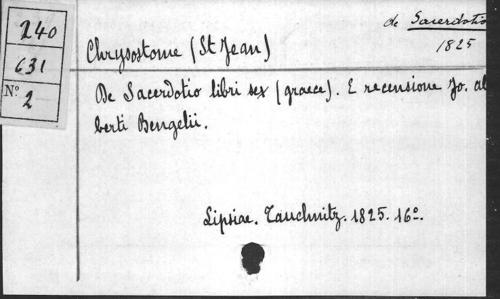 240
631
Nº 2
de Sacerdotio
1825
Chrysostome (St Jean)
De Sacerdotio libri sex (graece). E recensione Jo. al
berti Bengelii.
Lipsiae. Tauchnitz. 1825. 16º.